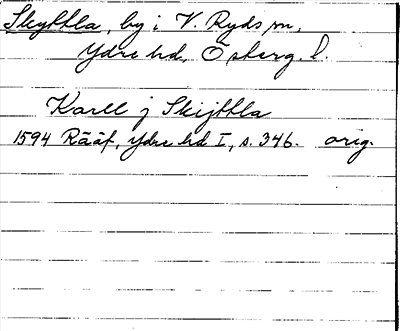 Skyttla, by i V. Ryds sn,
Ydre hd, Österg. l.
Karll j Skijttla
1594 Rääf, Ydre hd I, s. 346. orig.